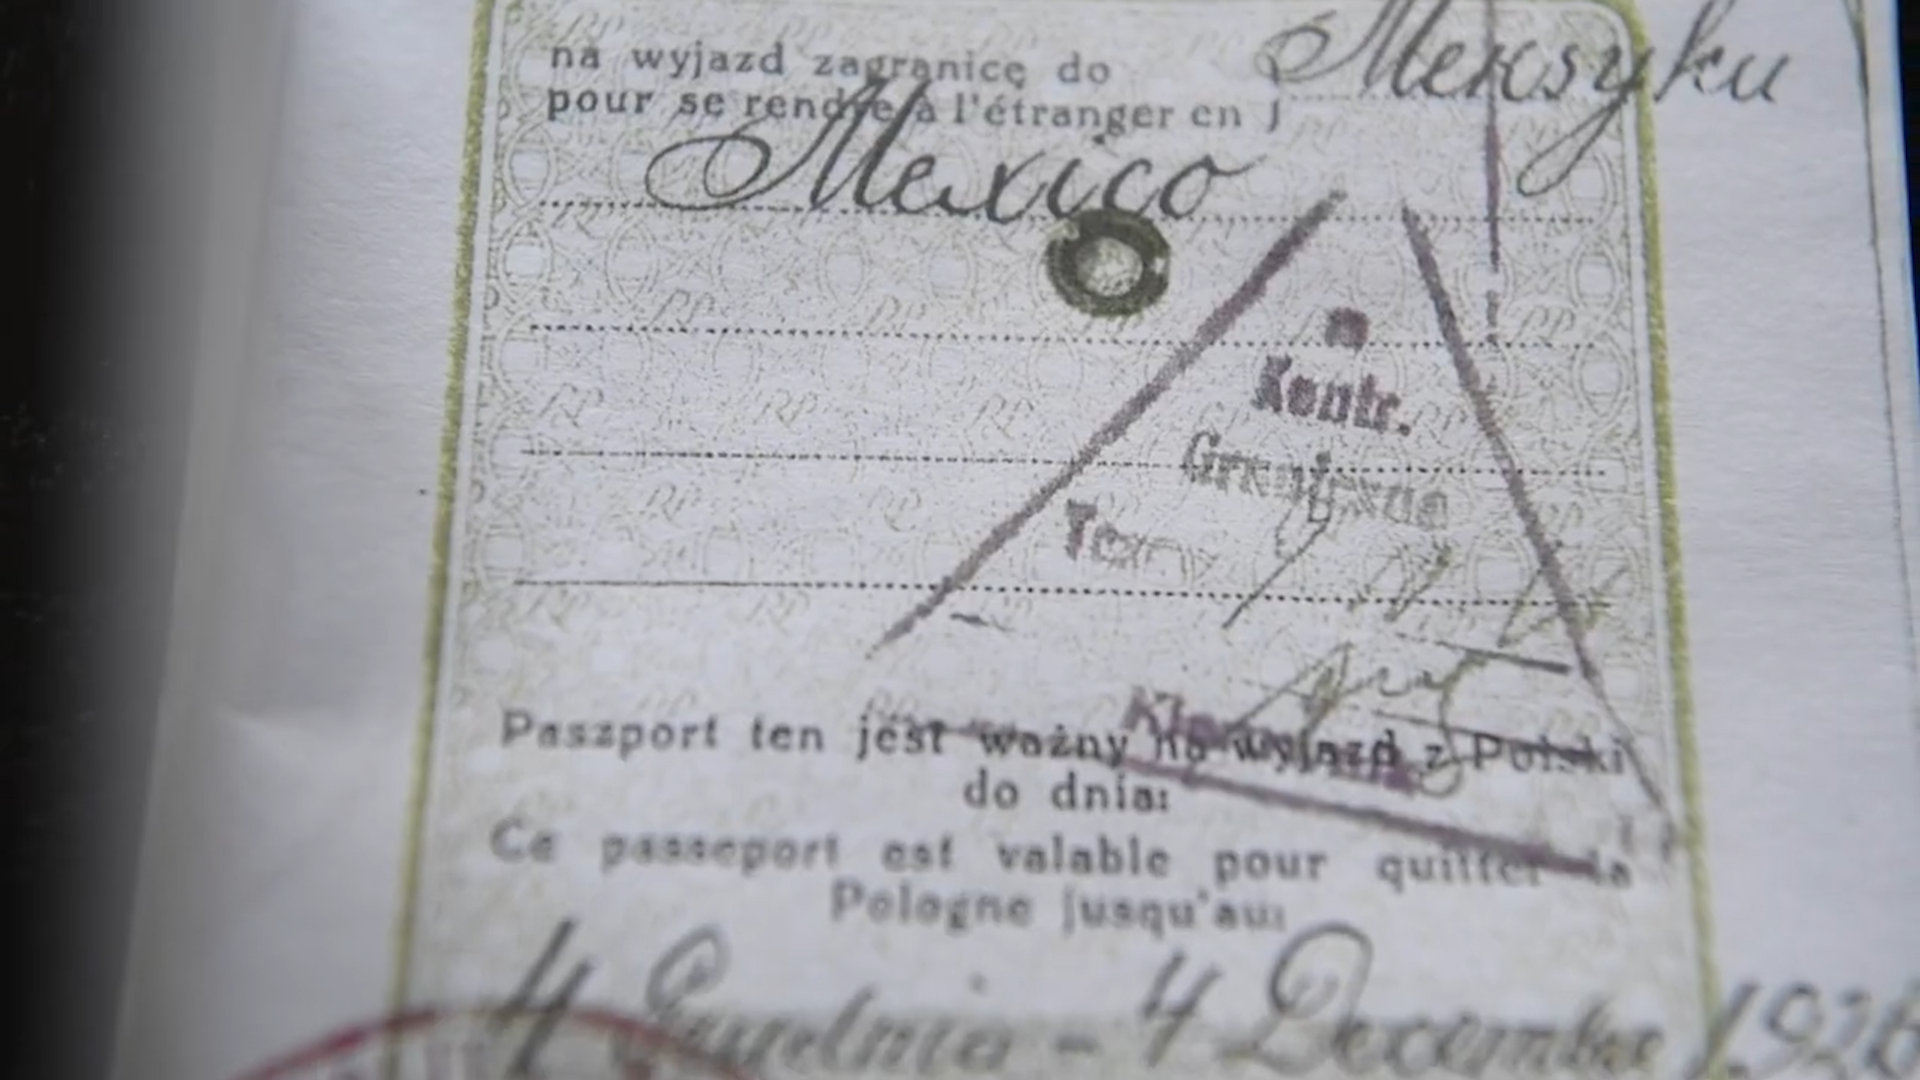 na wyjazd zagranicę do
Meksyku
pour se rendre à l'étranger en
Mexico
Kontr.
Graniczna
Paszport ten jest ważny na wyjazd z Polski
do dnia:
Ce passeport est valable pour quitter la
Pologne jusqu'au:
4 Grudnia - 4 December 1926